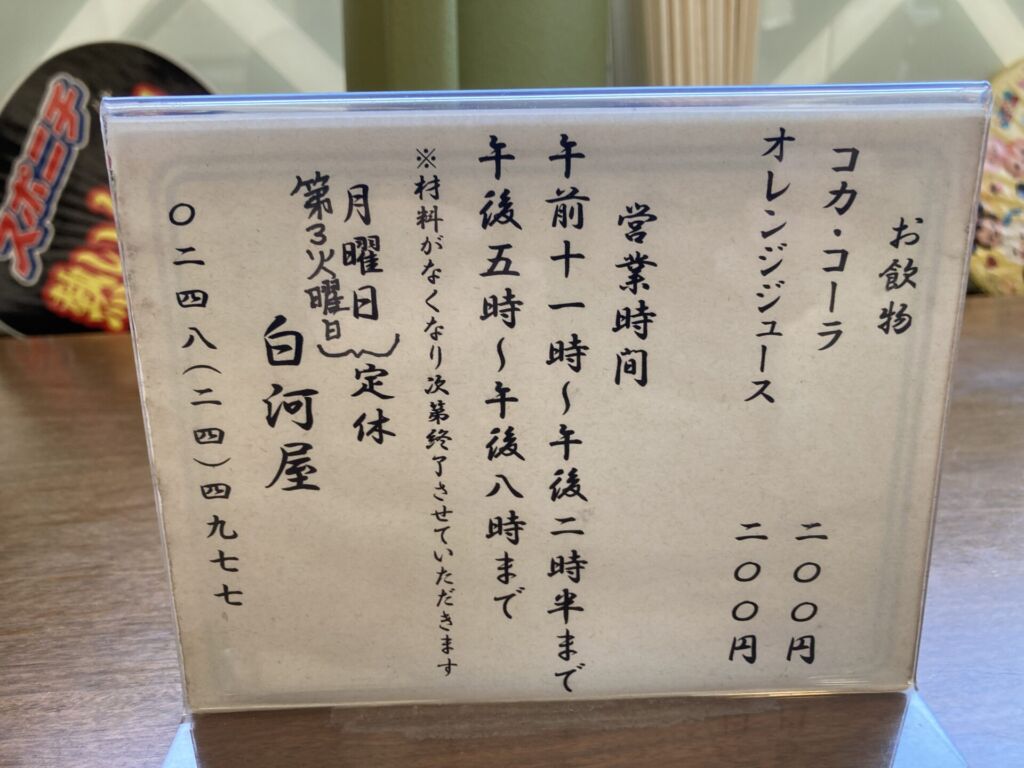 お飲物
コカ・コーラ 二〇〇円
オレンジジュース 二〇〇円
営業時間
午前十一時〜午後二時半まで
午後五時〜午後八時まで
※材料がなくなり次第終了させていただきます
月曜日 定休
第3火曜日
白河屋
〇二四八(二四)四九七七
スポニチ